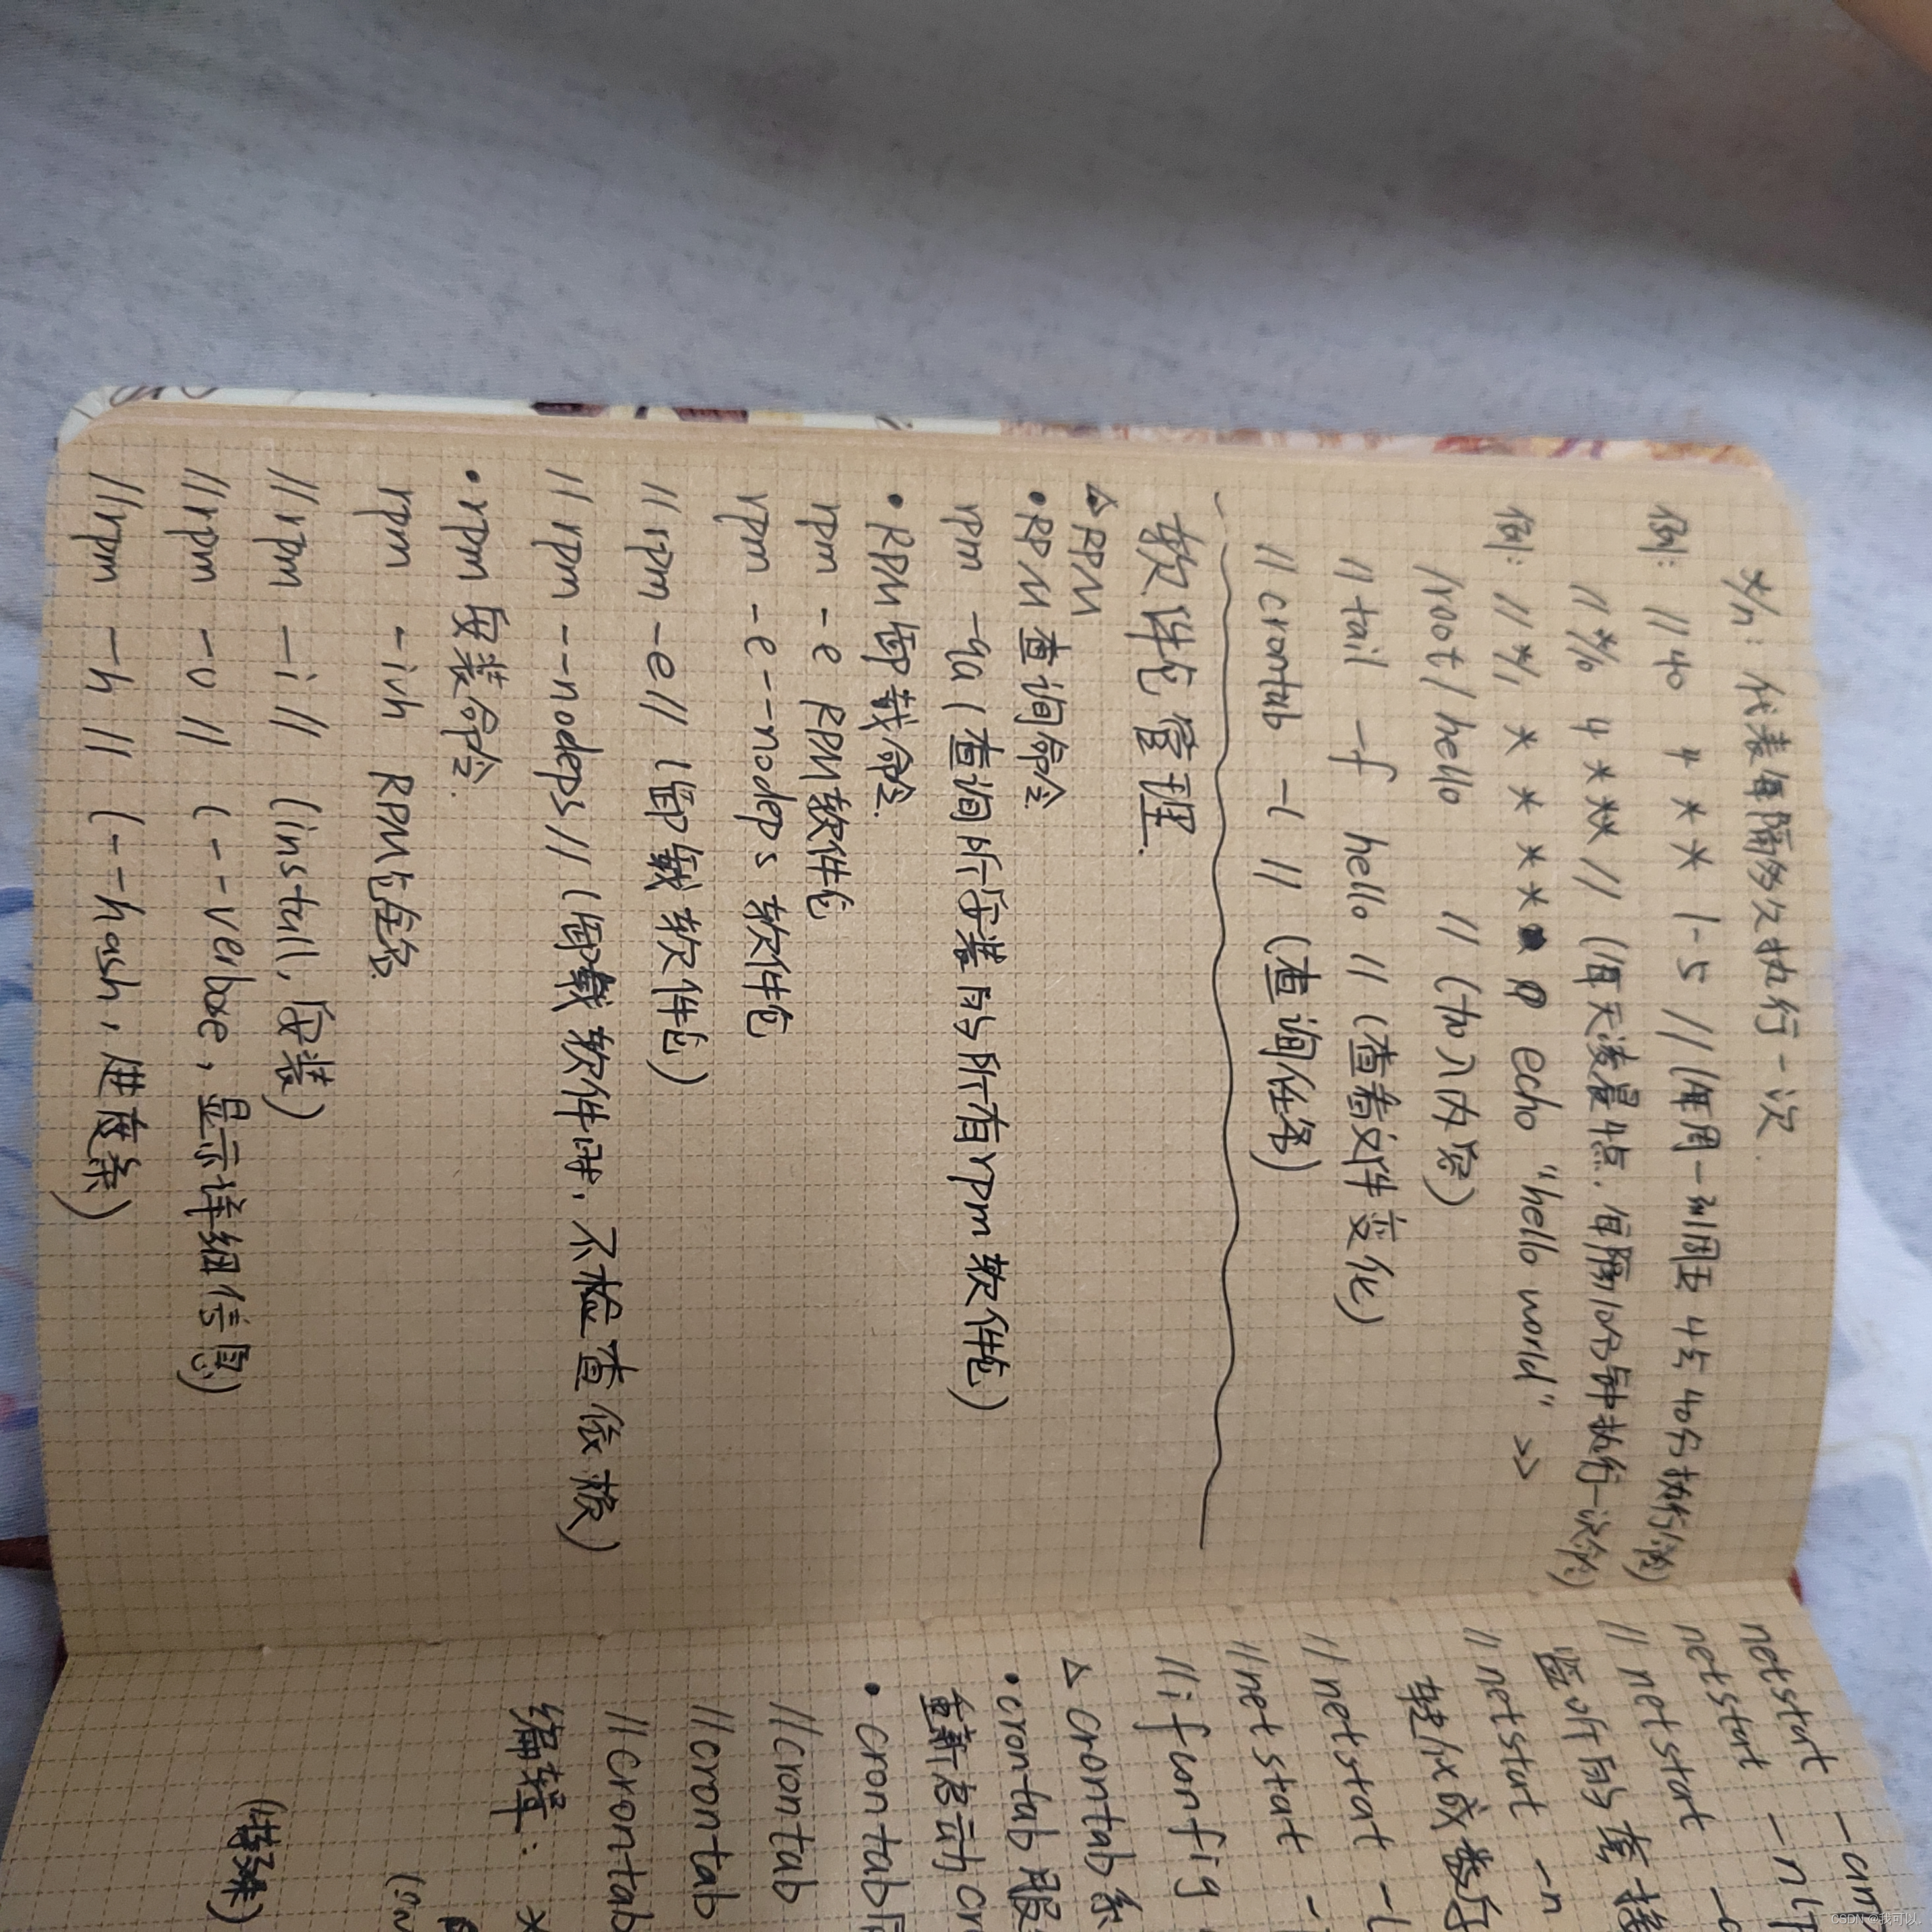 */n: 代表每隔多久执行一次.
例: // 40 4 * * 1-5 // (每周一到周五 4点 40分执行)
// */10 4 * * * // (每天凌晨4点. 每隔10分钟执行一次)
例: // */1 * * * * echo "hello world" >>
/root/hello // (加入内容)
// tail -f hello // (查看文件变化)
// crontab -l // (查询任务)
软件包管理.
△ RPM
• RPM 查询命令
rpm -qa (查询所安装的所有rpm软件包)
• RPM卸载命令.
rpm -e RPM软件包
rpm -e --nodeps 软件包
// rpm -e // (卸载软件包)
// rpm --nodeps // (卸载软件时, 不检查依赖)
• rpm 安装命令.
rpm -ivh RPM包全名
// rpm -i // (install, 安装)
// rpm -v // (--verbose, 显示详细信息)
// rpm -h // (--hash, 进度条)
netstat -an
netstat -nlt
// netstart -a
监听的 套接
// netstart -n
转/ix成数字
// netstat -l
// netstart -
// ifanfig
△ crontab 系
• crontab 服
重新启动 cr
• crontab
// crontab
// crontab
// crontab
编辑: *
CSDN @我可以